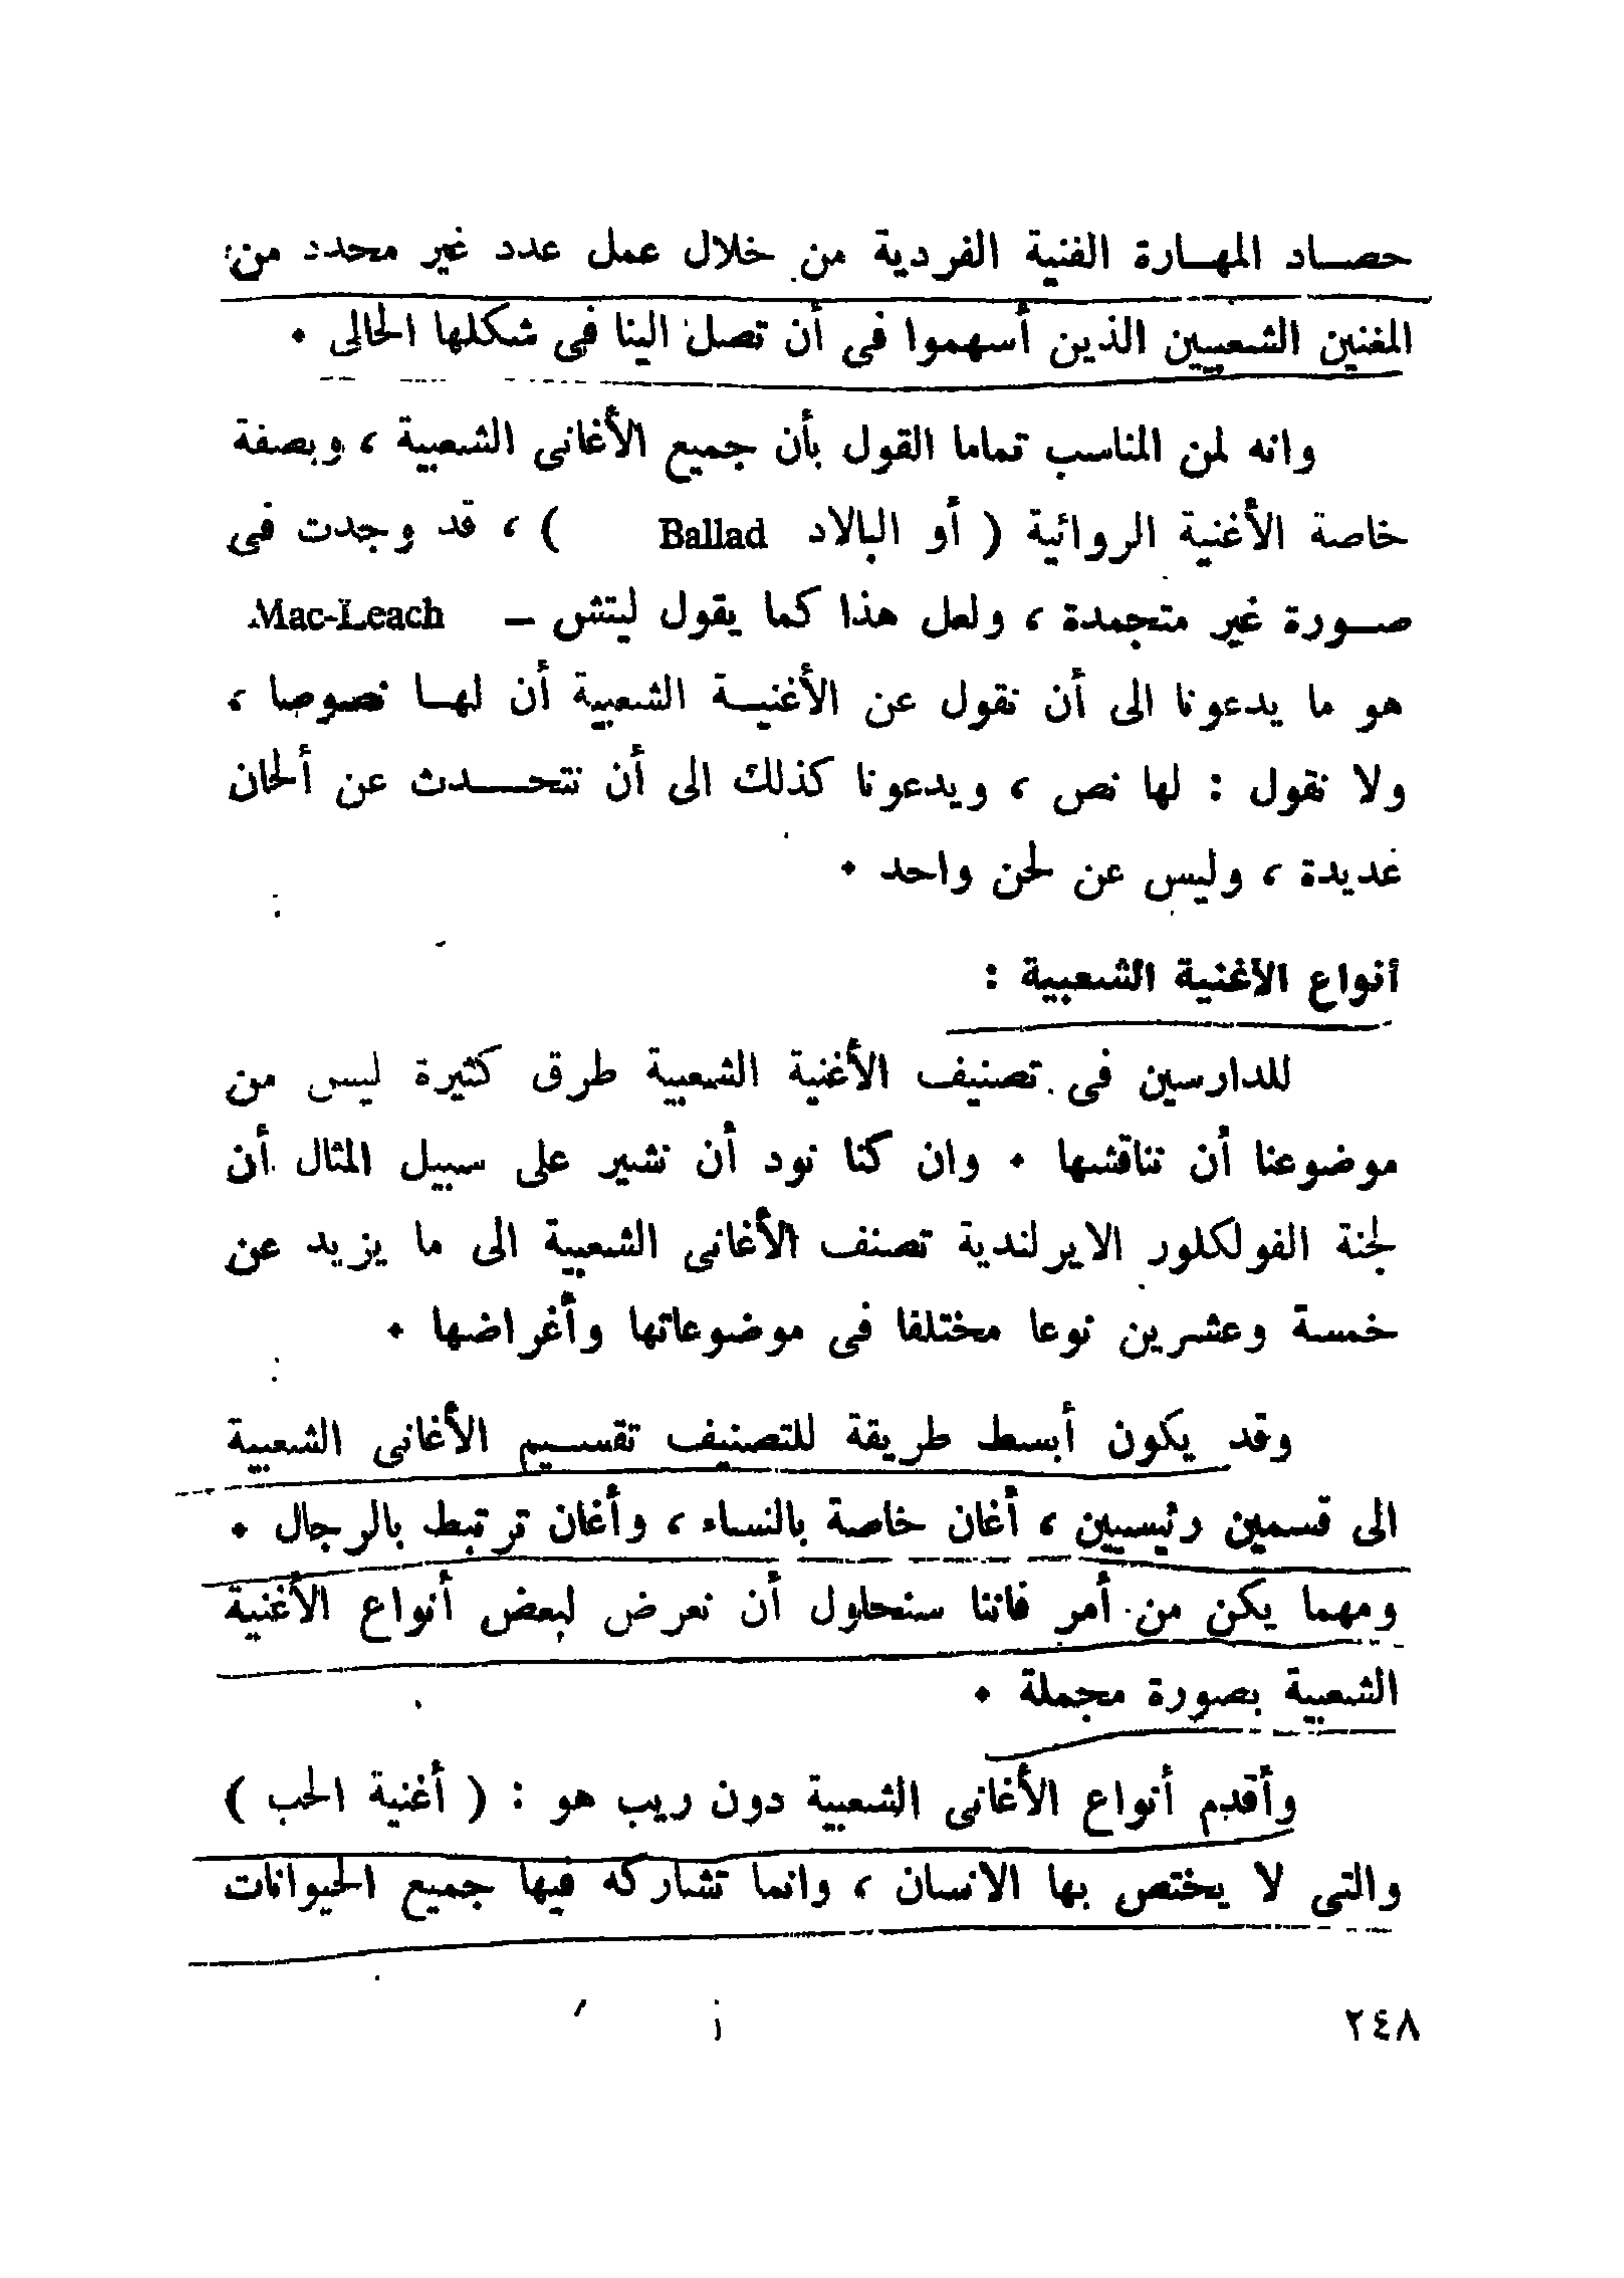 حصاد المهارة الفنية الفردية من خلال عمل عدد غير محدد من
المغنين الشعبيين الذين أسهموا فى أن تصل الينا فى شكلها الحالى ٠
وانه لمن المناسب تماما القول بأن جميع الأغانى الشعبية ، وبصفة
خاصة الأغنية الروائية ( أو البالاد Ballad ) ، قد وجدت فى
صورة غير متجمدة ، ولعل هذا كما يقول ليتش – Mac-Leach
هو ما يدعونا الى أن نقول عن الأغنية الشعبية أن لها نصوصا ،
ولا نقول : لها نص ، ويدعونا كذلك الى أن نتحدث عن ألحان
عديدة ، وليس عن لحن واحد ٠
أنواع الأغنية الشعبية :
للدارسين فى تصنيف الأغنية الشعبية طرق كثيرة ليس من
موضوعنا أن نناقشها ٠ وان كنا نود أن نشير على سبيل المثال أن
لجنة الفولكلور الايرلندية تصنف الأغانى الشعبية الى ما يزيد عن
خمسة وعشرين نوعا مختلفا فى موضوعاتها وأغراضها ٠
وقد يكون أبسط طريقة للتصنيف تقسيم الأغانى الشعبية
الى قسمين رئيسيين ، أغان خاصة بالنساء ، وأغان ترتبط بالرجال ٠
ومهما يكن من أمر فاننا سنحاول أن نعرض لبعض أنواع الأغنية
الشعبية بصورة مجملة ٠
وأقدم أنواع الأغانى الشعبية دون ريب هو : ( أغنية الحب )
والتى لا يختص بها الانسان ، وانما تشاركه فيها جميع الحيوانات
٢٤٨